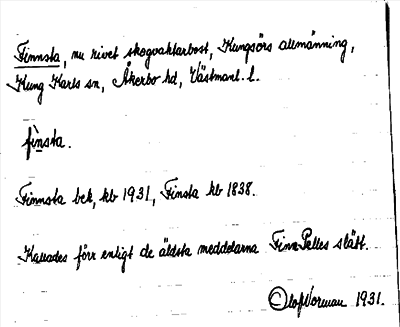 Finnsta, nu rivet skogvaktarbost, Kungsörs allmänning,
Kung Karls sn, Åkerbo hd, Västmanl. l.
finsta.
Finnsta bek, kb 1931, Finsta kb 1838.
Kallades förr enligt de äldsta meddelarna Finn Pelles slätt.
Olof Norman 1931.